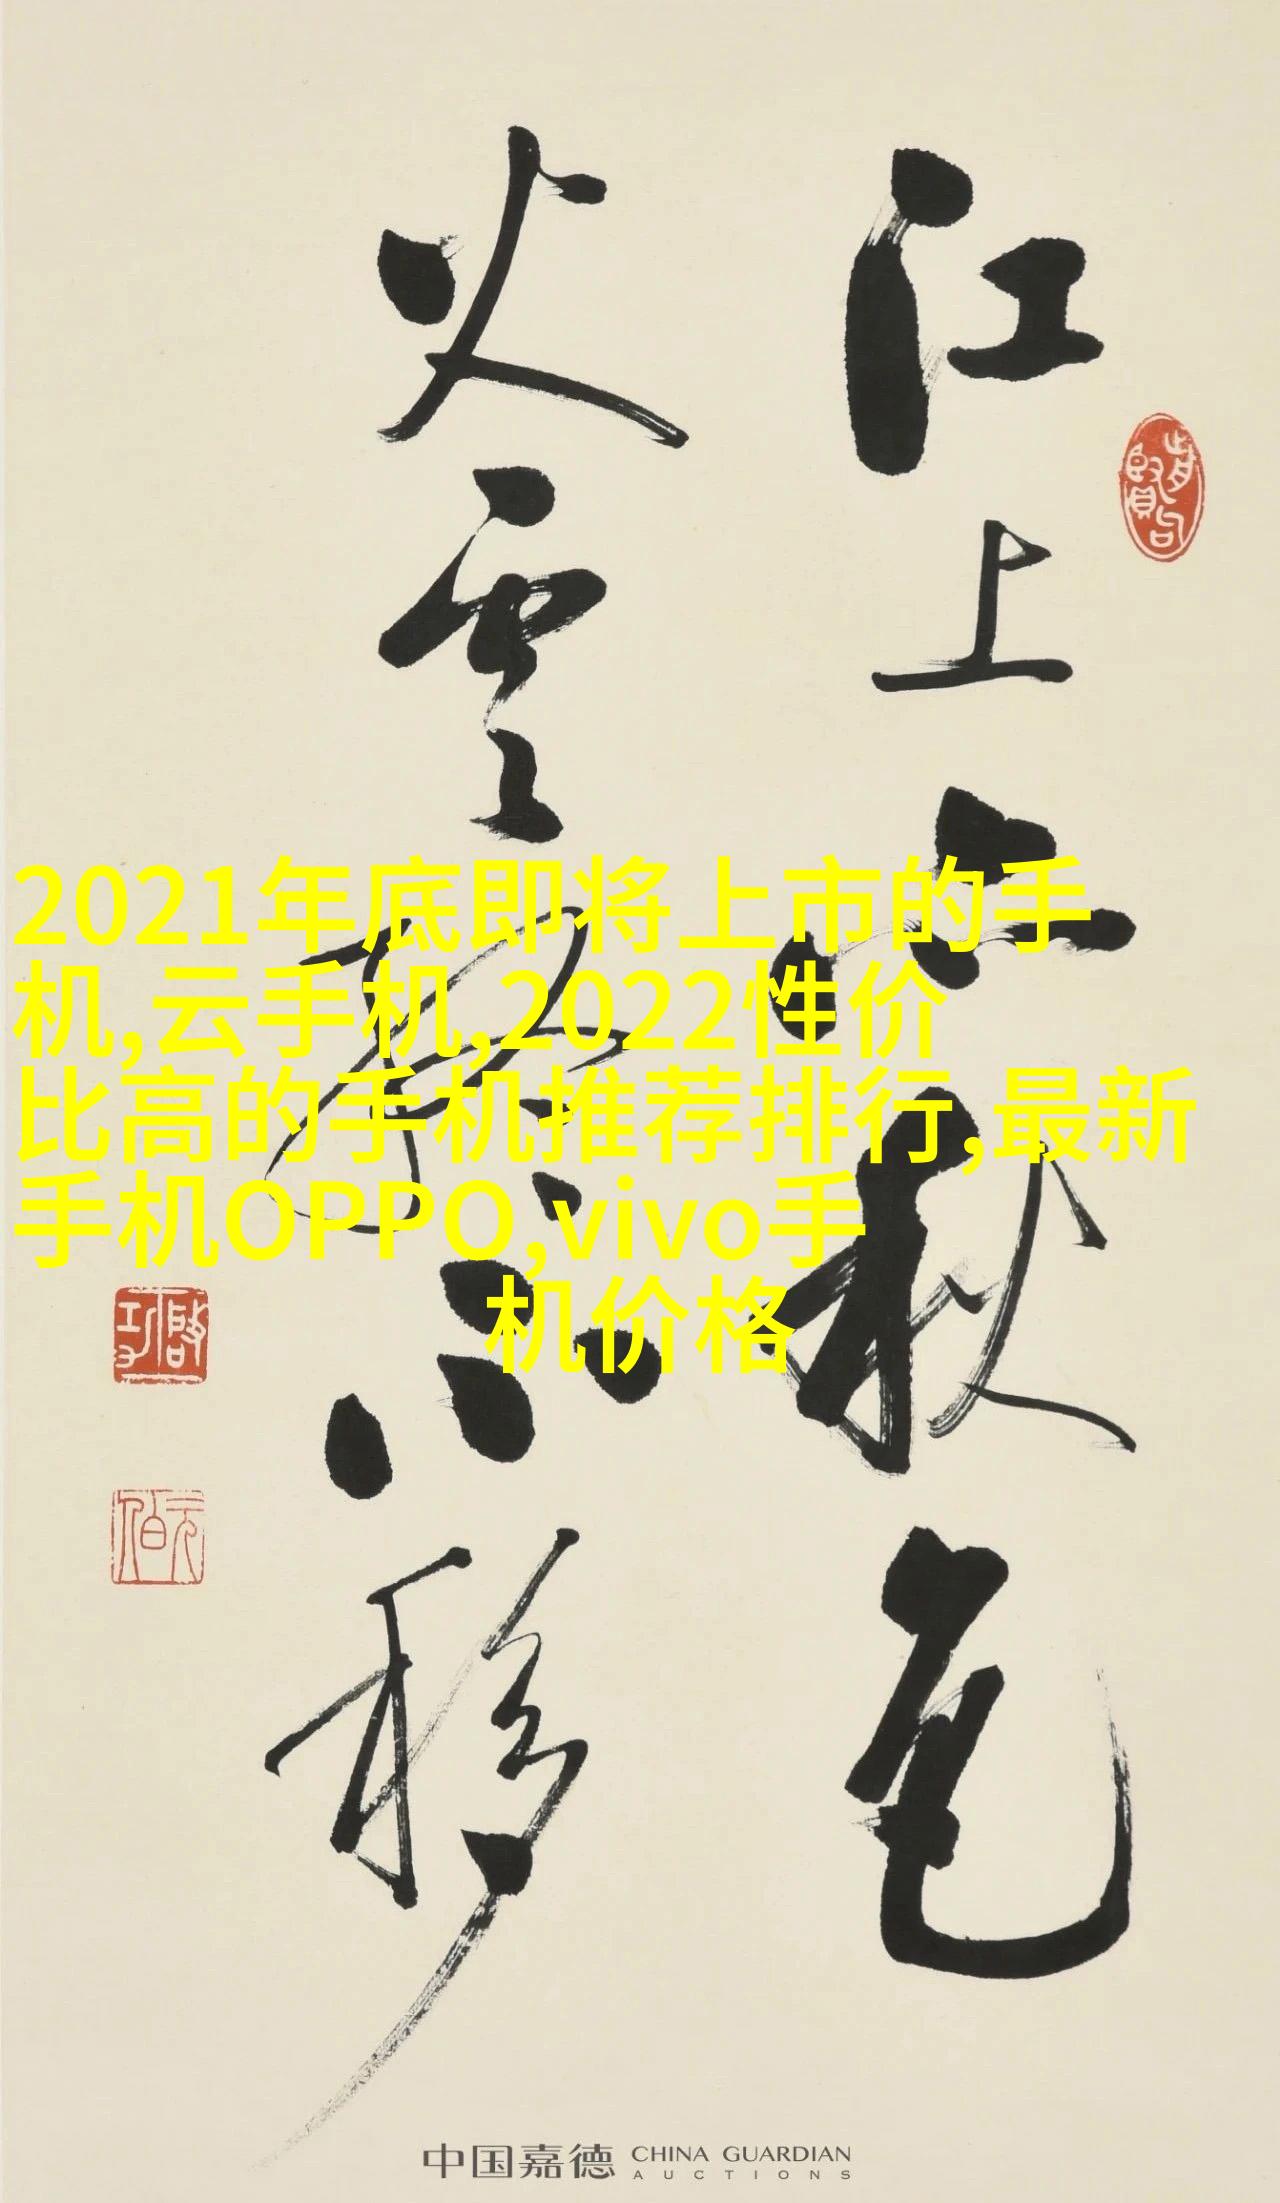 江上亦秋色
火雲終不移
啓功
元伯
2021年底即将上市的手
机,云手机,2022性价
比高的手机推荐排行,最新
手机OPPO,vivo手
机价格
中国嘉德 CHINA GUARDIAN
AUCTIONS